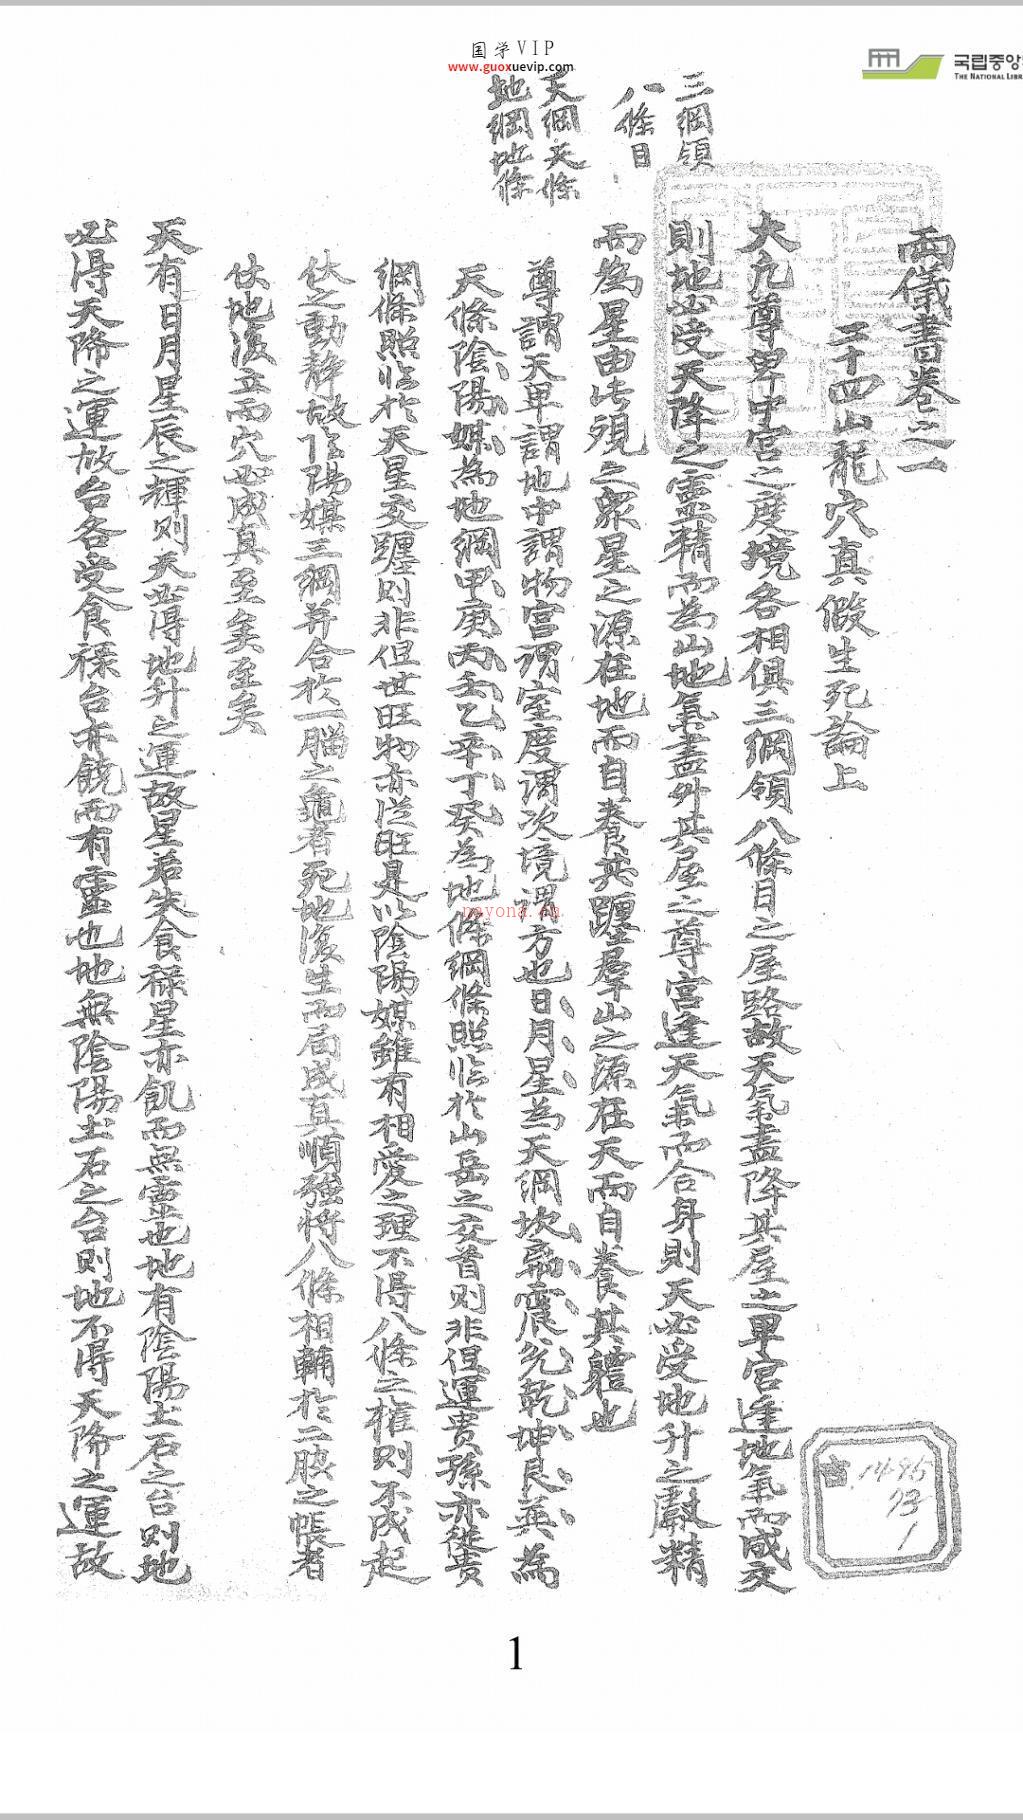 国学VIP
www.guoxuevip.com
국립중앙
THE NATIONAL LIBR
三綱領
八條目
天綱天條
地綱地條
兩儀書卷之一
二十四山龍穴真假生死論上
大凡尊卑中宮之度境各相俱三綱領八條目之屋路故天氣盡降其屋之卑宮逢地氣而成交
則地必受天降之靈精而為山地氣盡升其屋之尊宮逢天氣而合身則天必受地升之獻精
而為星由此現之眾星之源在地而自養其躔羣山之源在天而自養其體也
尊謂天卑謂地中謂物宮謂室度謂次境謂方也日月星為天綱坎离震兌乾坤艮巽為
天條陰陽媒為地綱甲庚丙壬乙辛丁癸為地條綱條照临扵山岳之交首则非但運贵孫亦從贵
綱條照临扵天星交躔则非但世旺物亦從旺是以陰陽媒雖有相愛之理不得八條之權则不成起
伏之動靜故陰陽媒三綱并合扵一腦之龜者死地復生而局成真順強將八條相輔扵二肢之帳者
伏地復立而穴必成真至矣至矣
天有日月星辰之輝则天必得地升之運故星若失食禄星亦飢而無靈也地有陰陽土石之台则地
必得天降之運故台各受食禄台亦饒而有靈也地無陰陽土石之台则地不得天降之運故
古 1495
13
1
nayona.cn
1